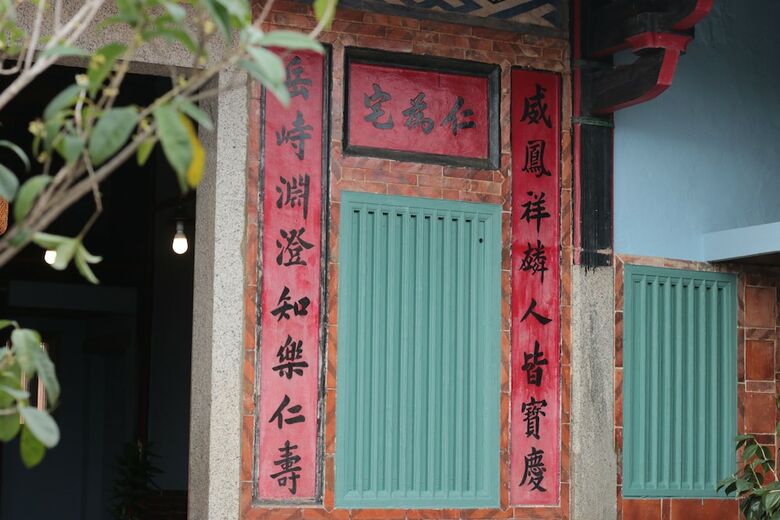 仁為宅
威鳳祥麟人皆寶慶
岳峙淵澄知樂仁壽